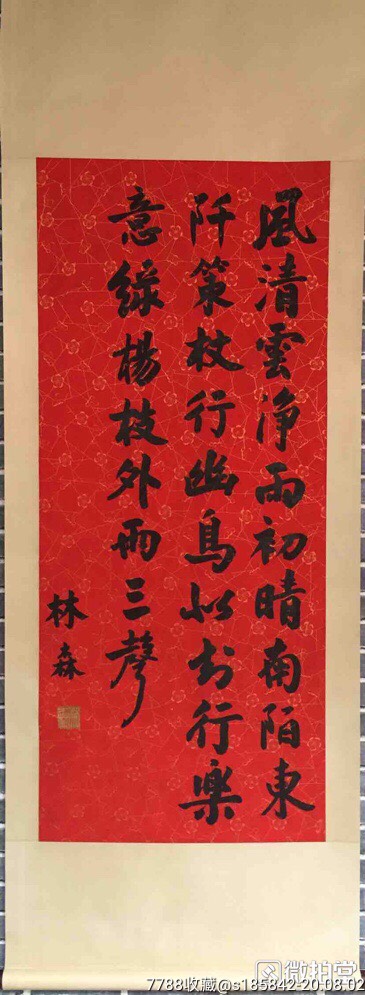 風清雲淨雨初晴南陌東
阡策杖行幽鳥似知行樂
意綠楊枝外兩三聲
林森
微拍堂
7788收藏@s185842-20-08-02